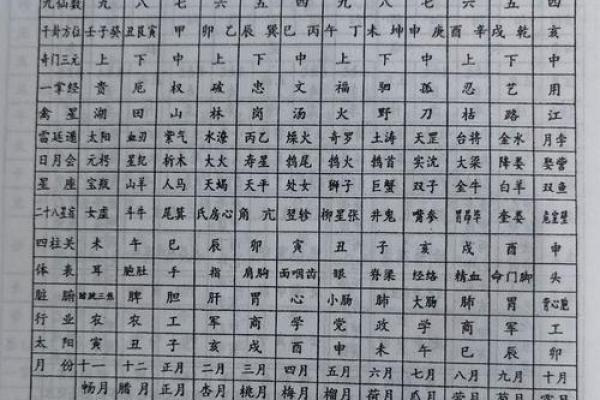 九仙数 九 八 七 六 五 四 九 八 七 六 五 四
干卦方位 壬子癸 丑艮寅 甲 卯 乙 辰 巽 巳 丙 午 丁 未 坤 申 庚 酉 辛 戌 乾 亥
奇门三元 上 下 中 上 下 中 中 上 下 中 上 下 中
一掌经 贵 厄 权 破 忠 文 福 驷 孤 忍 艺 用
禽星 湖 田 山 林 岗 汤 火 野 刀 枯 路 江
雷廷遁 太阳 血刃 紫气 水潦 丙乙 燥火 奇罗 土涛 天罡 台将 金水 月孛
日月会 元枵 星纪 析木 大火 寿星 鹑尾 鹑火 鹑首 实沈 大梁 降娄 娶訾
星座 宝瓶 山羊 人马 天蝎 天平 处女 狮子 巨蟹 双子 金牛 白羊 双鱼
二十八星宿 女虚 斗牛 尾箕 氐房心 角亢 翌轸 柳星张 井鬼 嘴参 胃昴毕 奎娄 危室壁
四柱关 未 午 巳 辰 卯 寅 丑 子 亥 戌 酉 申
体表 耳 胞肚 手 指 肩胸 面咽齿 眼 脊梁 经络 精血 命门脚 头
脏腑 三焦 脾 胆 肝 胃 心 小肠 肺 大肠 肺 胃 膏心胞
行业 农 农 工 军 商 学 党 政 学 商 军 工
太阳 寅 丑 子 亥 戌 酉 申 未 午 巳 辰 卯
月份 十一 十二 正月 二月 三月 四月 五月 六月 七月 八月 九月 十月
畅月 腊月 正月 杏月 桃月 梅月 榴月 荷月 瓜月